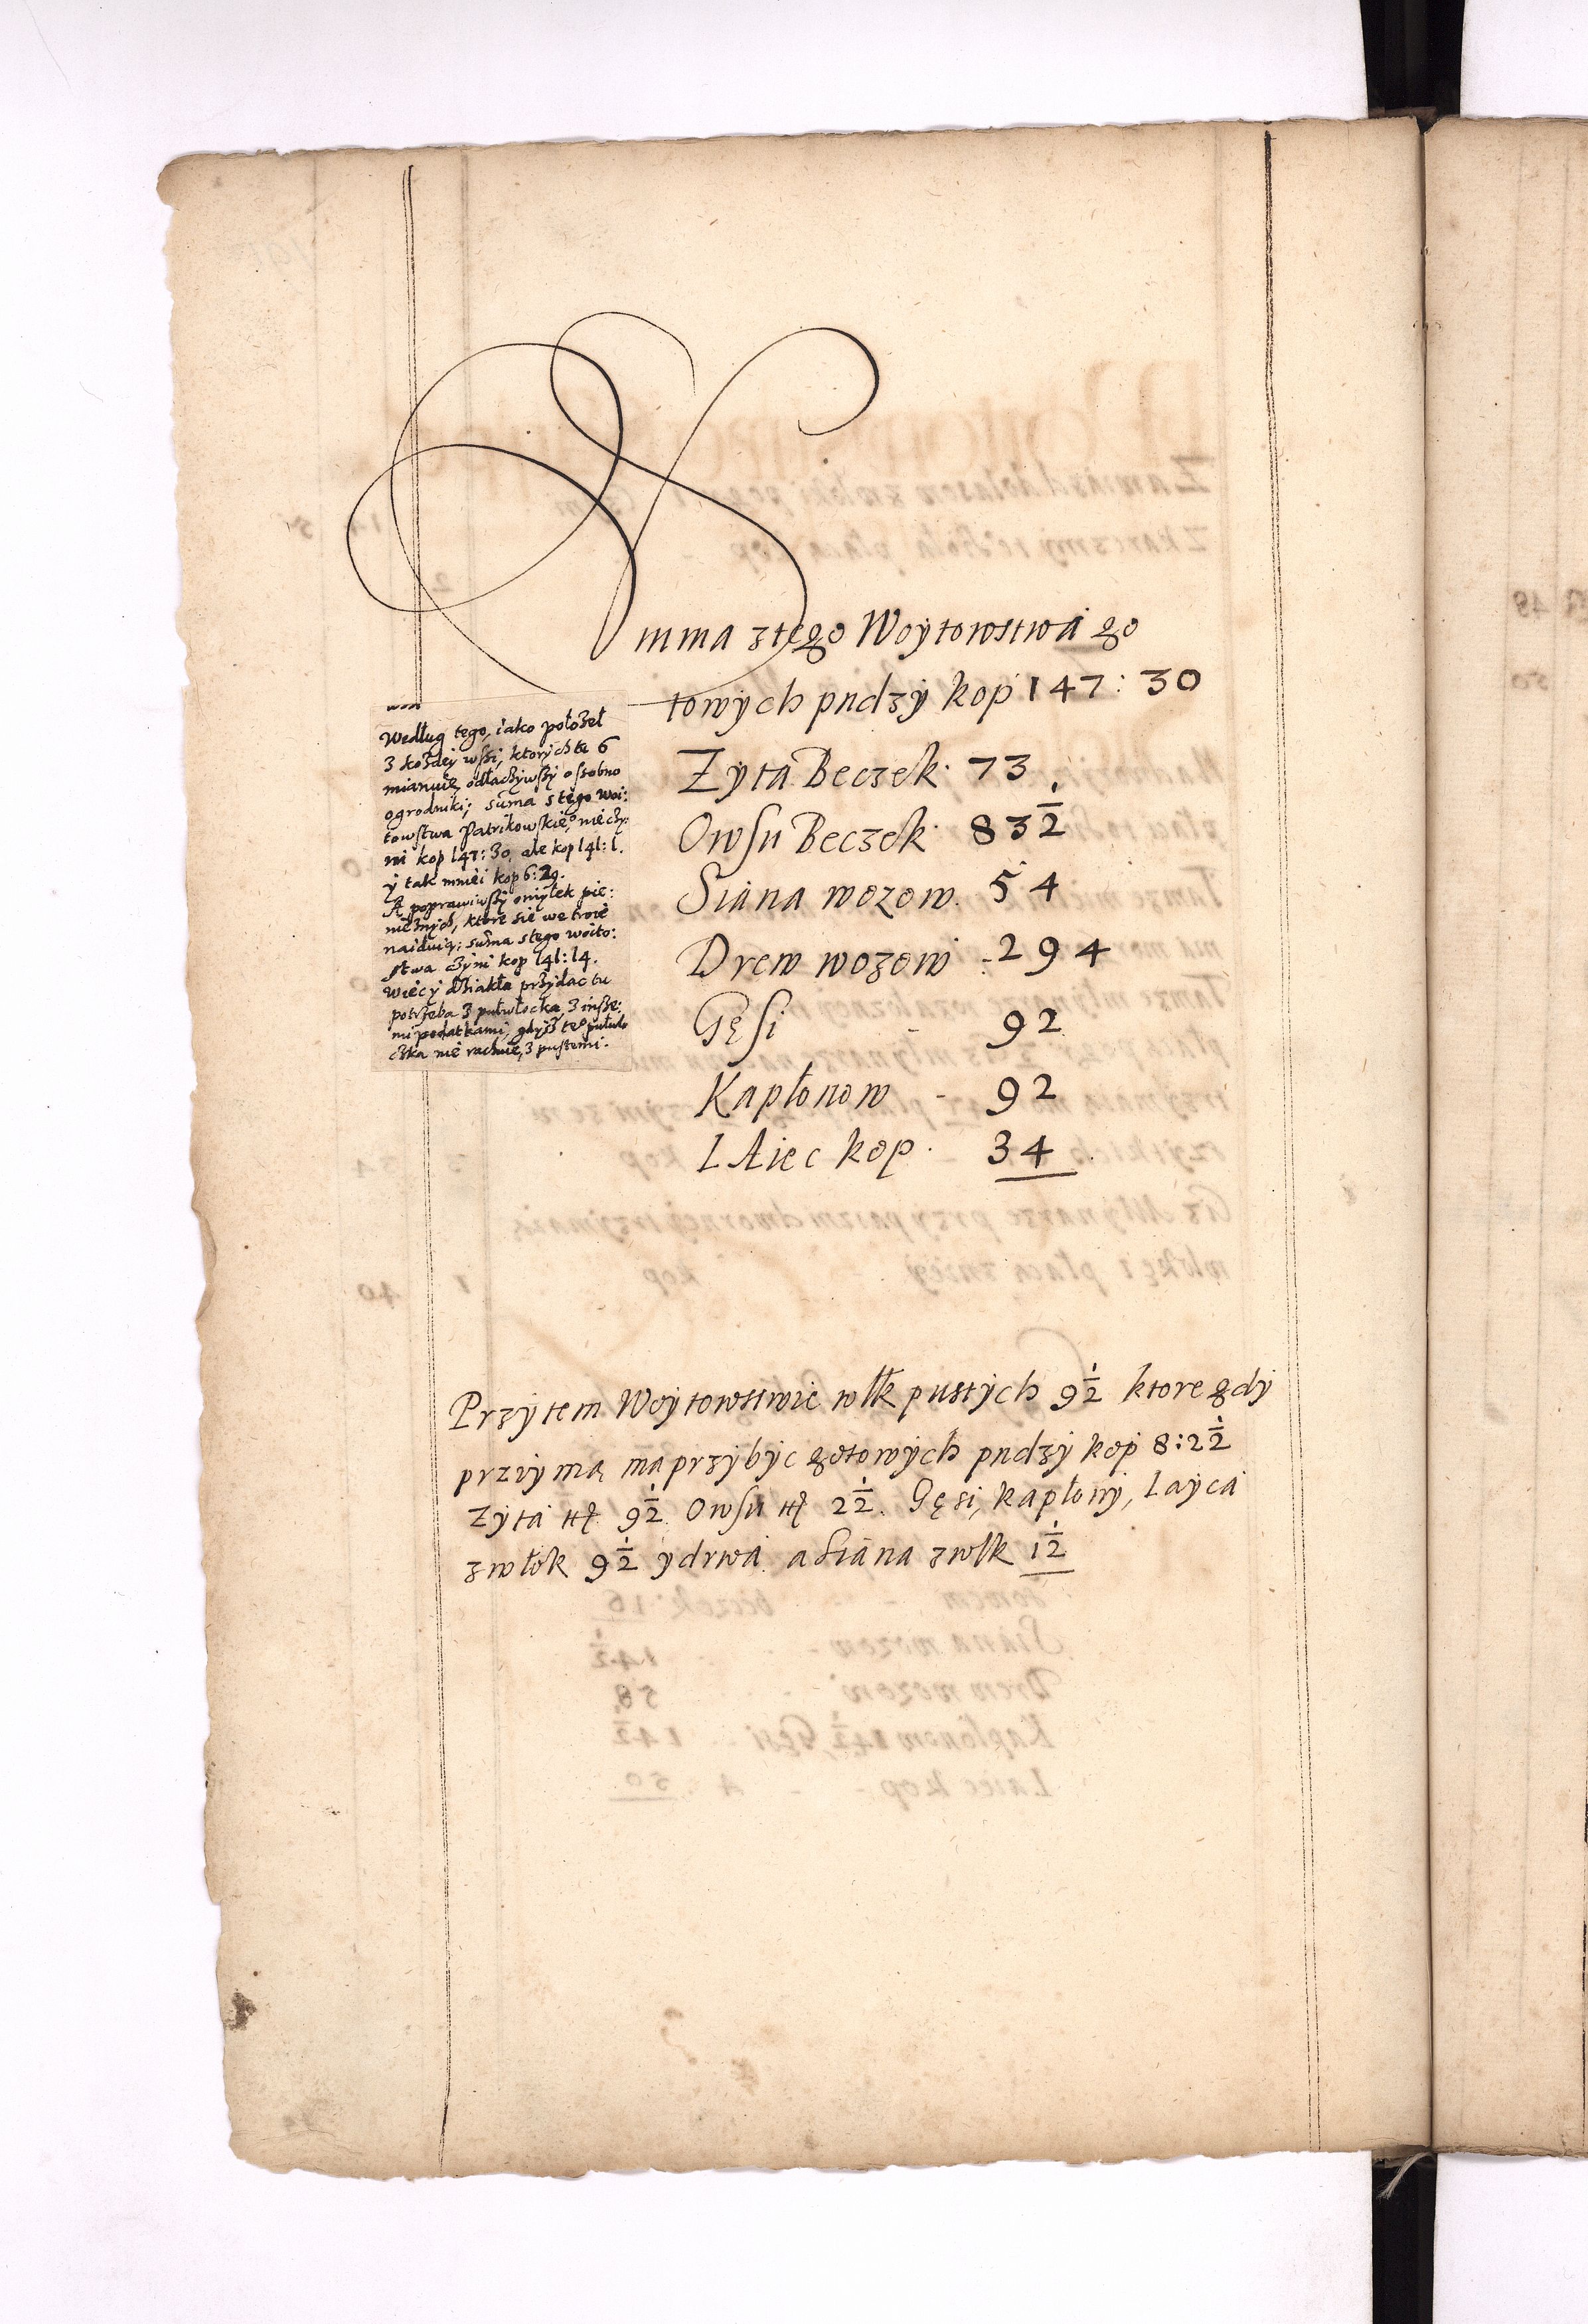 Summa z tego Woytowstwa go
towych pndzy kop 147: 30
Zyta Beczek 73
Owsu Beczek 83 1/2
Siana wozow. 54
Drew wozow - 294
Gęsi - 92
Kapłonow - 92
IAiec kop. 34
Według tego, iako położeł
z każdey wśi, ktorych tu 6
mianuię, odłączywszy osobno
ogrodniki; suma s tego Woi:
towstwa Patrikowskie° nie czy:
ni kop 147: 30, ale kop 141: 1.
y tak mniei kop 6: 29.
A poprawiwszy omyłek pie:
nieżnych, ktore się we troie
naiduią: suma s tego woito:
stwa czyni kop 141: 14.
Więc y dziakła przydac tu
potrzeba z pułwłocka, z insze:
mi podatkami, gdyż te° pułwło
czka nie rachuie, z pustemi.
Przytem Woytowstwie włk pustych 9 1/2 ktore gdy
przyimą ma przybyc gotowych pndzy kop 8: 2 1/2
Zyta 9 1/2 Owsu 2 1/2. Gęsi, kapłony, Iayca
z włok 9 1/2 y drwa. a Siana z włk 1 1/2